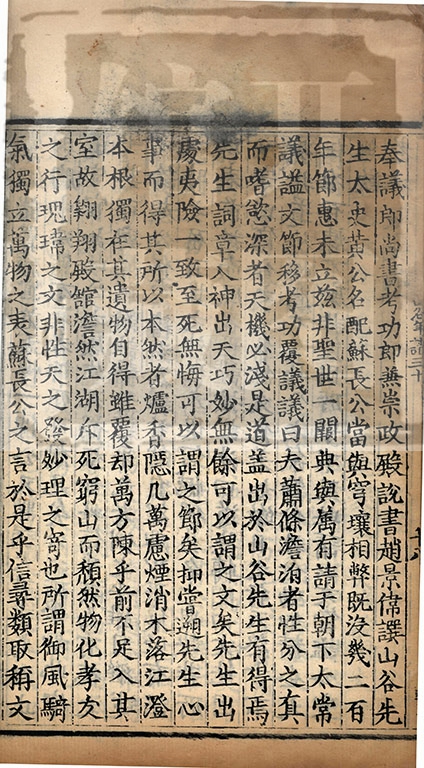 奉議郎尚書考功郎兼崇政殿說書趙景偉譔山谷先
生太史黃公名配蘇長公當與穹壤相弊既沒幾二百
年節惠未立茲非聖世一闕典與属有請于朝下太常
議謚文節移考功覆議議曰夫蕭條澹泊者性分之真
而嗜慾深者天機必淺是道盖出於山谷先生有得焉
先生詞章入神出天巧妙無餘可以謂之文矣先生出
處夷險一致至死無悔可以謂之節矣抑嘗遡先生心
事而得其所以本然者爐香隱几萬慮煙消木落江澄
本根獨在其遺物自得雖覆却萬方陳乎前不足入其
室故翱翔殿館澹然江湖斥死窮山而頹然物化孝友
之行瑰瑋之文非性天之發妙理之寄也所謂御風騎
氣獨立萬物之表蘇長公之言於是乎信尋類取稱文